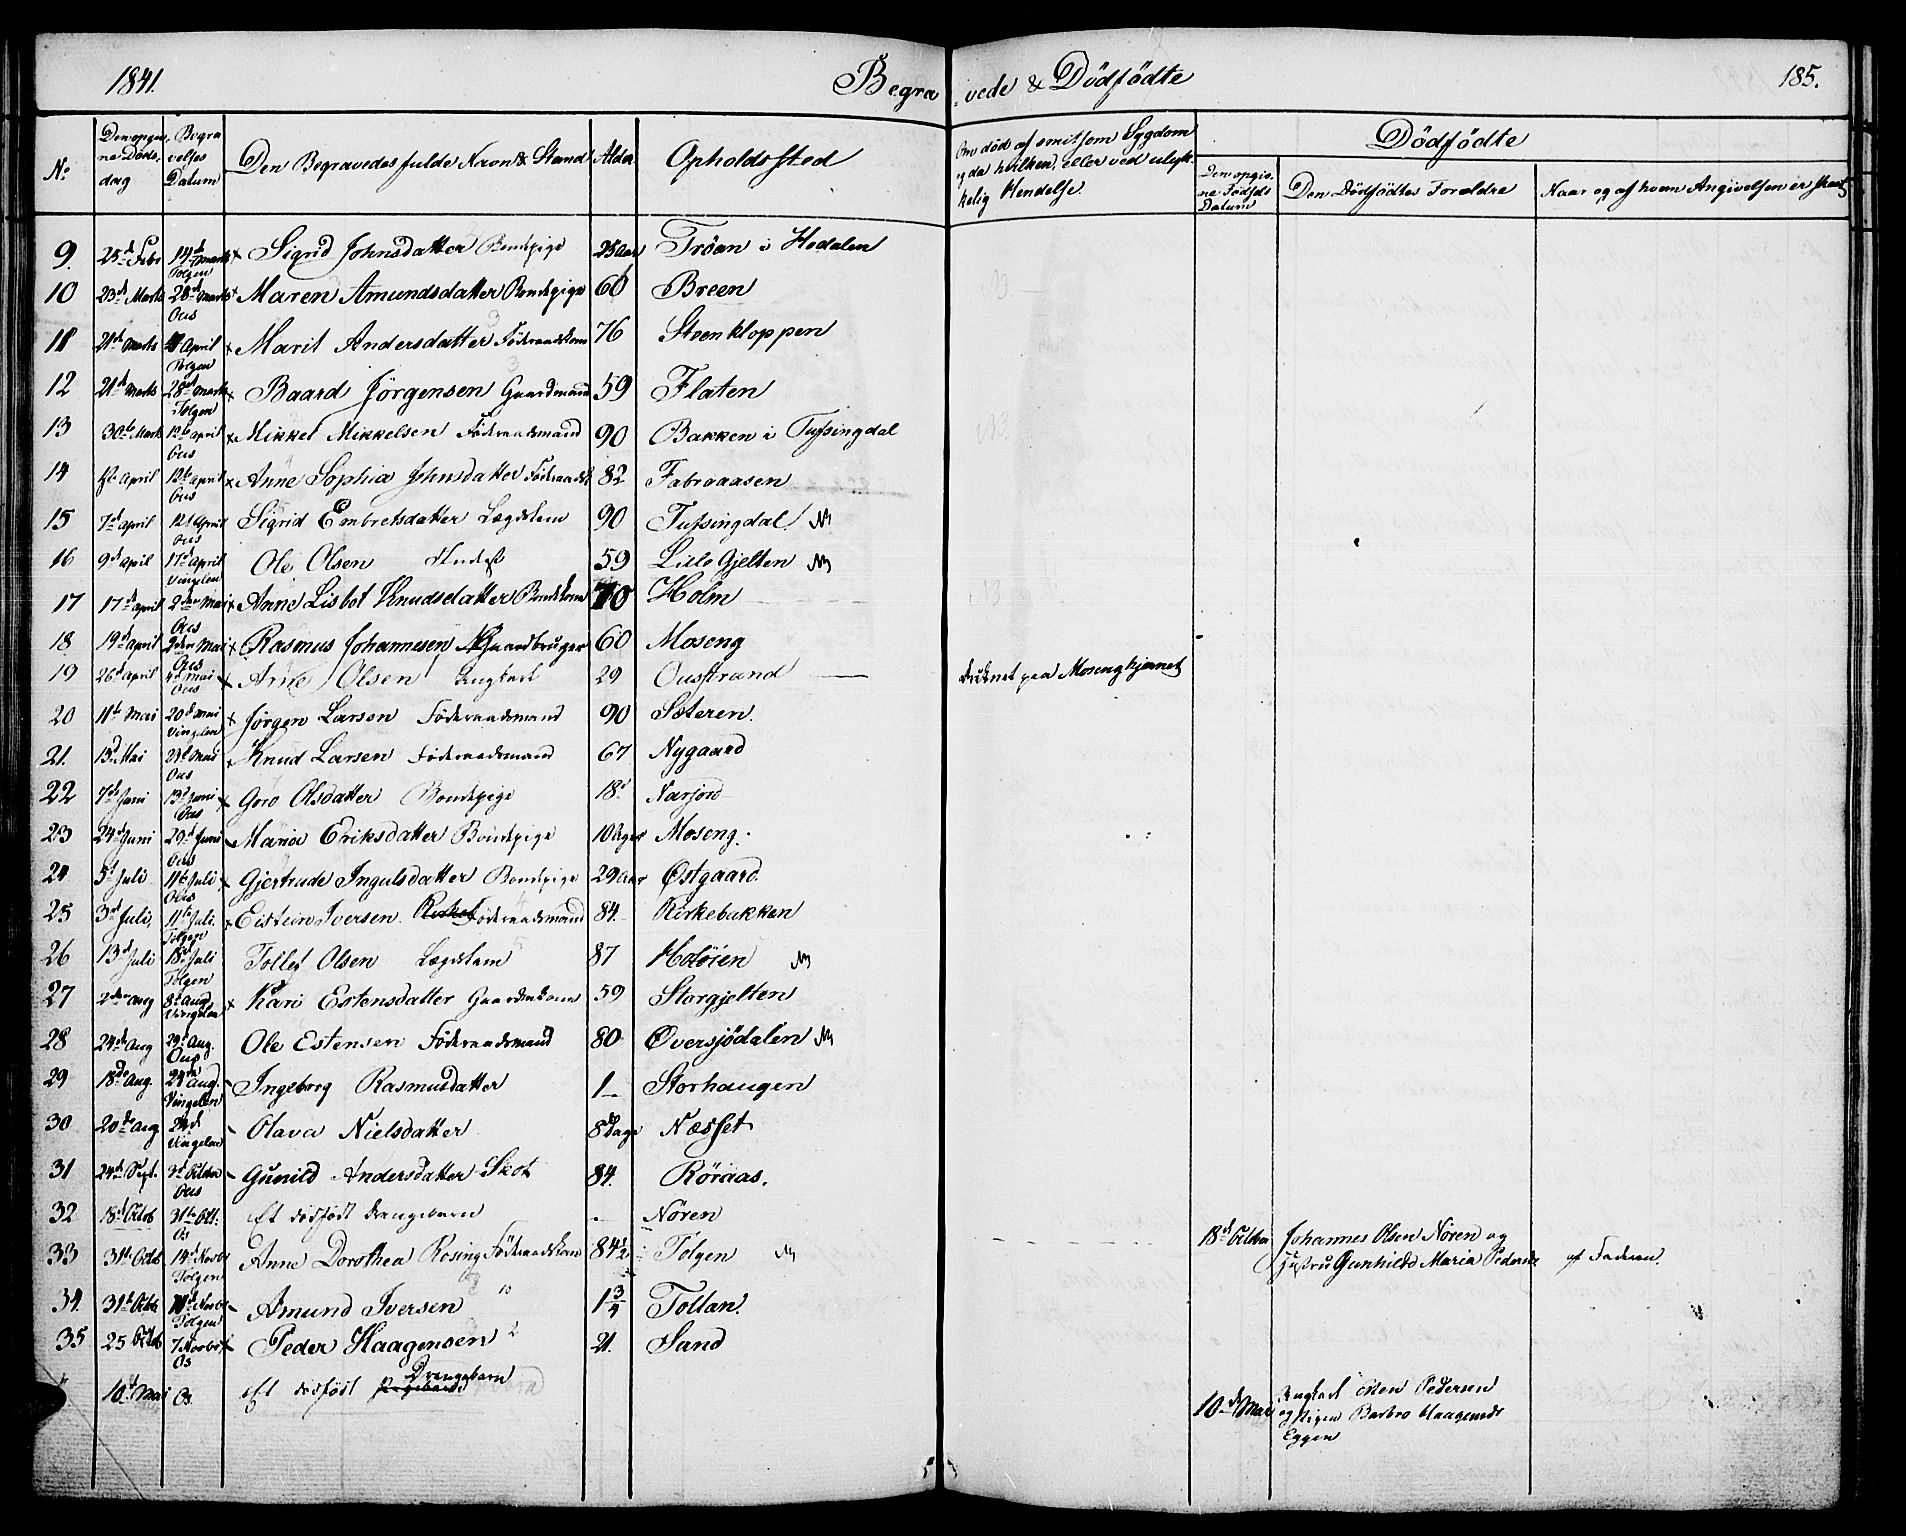 1841.
Begravede & Dödfödte
185.
No
Den opgivne Döds dag
Begravelses Datum
Den Begravedes fulde Navn & Stand
Alder
Opholdssted
Om död af smitsom Sygdom
og da hvilken, eller ved ulyk-
kelig Hendelse.
Dödfödte
Den opgivne Födsels Datum
Den Dödfödtes Forældre
Naar og af hvem Angivelsen er skeet
9. 25d Febr 14d Marts Tolgen Sigrid Johnsdatter Bondepige 25 Aar Tröan i Hodalen
10 23d Marts 28d Marts Ous Maren Amundsdatter Bondepige 60 Breen
11 21d Marts April Tolgen Marit Andersdatter Föderaadskone 76 Steenkloppen
12 21d Marts 28d Marts Tolgen Baard Jörgensen Gaardmand 59 Flaten
13 30te Marts 12te april Ous Mikkel Mikkelsen Föderaadsmand 90 Bakken i Tufsingdal
14 april 12te april Ous Anne Sophia Johnsdatter Föderaadsk 82 Fabroaasen
15 7d april 12t April Ous Sigrid Embretsdatter Lægdslem 90 Tufsingdal
16 9d april 17d april Vingelen Ole Olsen Inderst 59 Lille Gjelten
17 17d april 2den Mai Ous Anne Lisbet Knudsdatter Bondekone 70 Holm
18 19d april 2den Mai Ous Rasmus Johannesen Gaardbruger 60 Moseng
19 26d april Mai Ous Arne Olsen Ungkarl 29 Ousstrand druknet paa Mosengkjernet
20 11te Mai 20d Mai Vingelen Jörgen Larsen Föderaadsmand 90 Sæteren.
21. 13d Mai 23d Mai Ous Knud Larsen Föderaadsmand 67 Nygaard
22 7de Juni 13d Juni Ous Goro Olsdatter Bondepige 18 Narjord
23 24d Juni 29d Juni Ous Maria Eriksdatter Bondepige 10 Uger Moseng.
24 5t Juli 11te Juli Ous Gjertrude Ingulsdatter Bondepige 29 Aar Östgaard.
25 3d Juli, 11te Juli. Tolgen Eistein Iversen. Föderaadsmand 84. Kirkebakken
26 13d Juli 18d Juli Tolgen Tollef Olsen Lægdslem 87 Holöien
27 2den aug 8t Aug Vingelen Kari Estensdatter Gaardkone 59 Storgjelten
28 24d Aug 29d Aug. Ous Ole Estensen Föderaadsmand 80 Översjödalen
29 18de Aug. 24d Aug. Vingelen Ingeborg Rasmusdatter 1 Storhaugen
30 20de Aug Vingelen Olava Nielsdatter 8 Dage Næsset
31 24d Sept. 3d Oktbr Ous Gunild Andersdatter Skot 84. Röraas.
32 18d Oktob 31te Okt. Os Et dödfödt Drengebarn Nören 18d Oktbr Johannes Olsen Nören og
Hustru Gunhild Maria Pedersd af Faderen.
33 31te Octob 14d Novbr Tolgen Anne Dorothea Rosing Föderaadskone 84½ Tolgen
34. 31te Octb Novbr Tolgen Amund Iversen 1 3/4 Tollan.
35 25 Octob 7 Novbr Os Peder Haagensen 21. Sand
" 10d Mai Os. Et dödfödt Drengebarn 10de Mai Ungkarl Esten Pedersen
og Pigen Barbro Haagensdr
Eggen